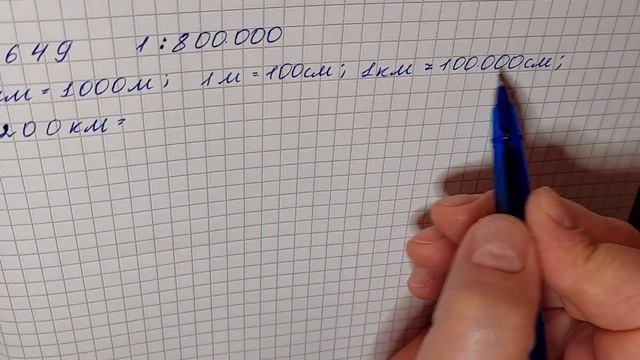 649 1:800.000
км = 1000м; 1м = 100см; 1км = 100.000см;
200км =